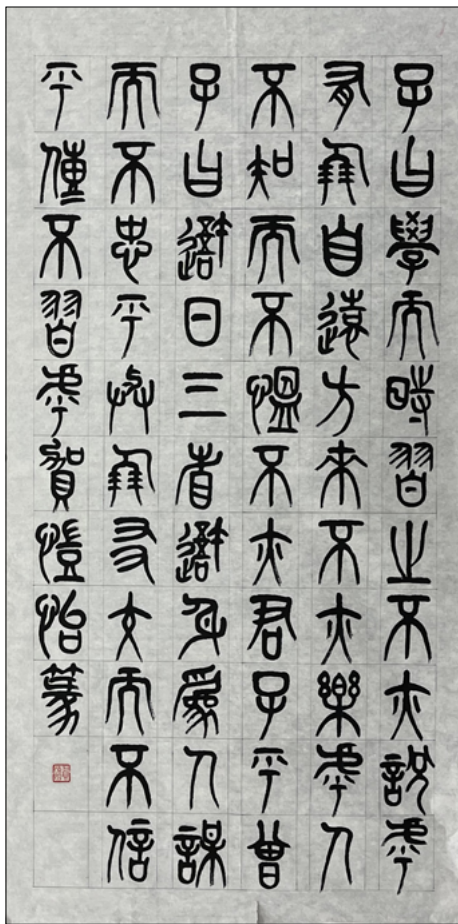 子曰學而時習之不亦說乎
有朋自遠方來不亦樂乎人
不知而不慍不亦君子乎曾
子曰吾日三省吾身為人謀
而不忠乎與朋友交而不信
乎傳不習乎賀愷怡篆